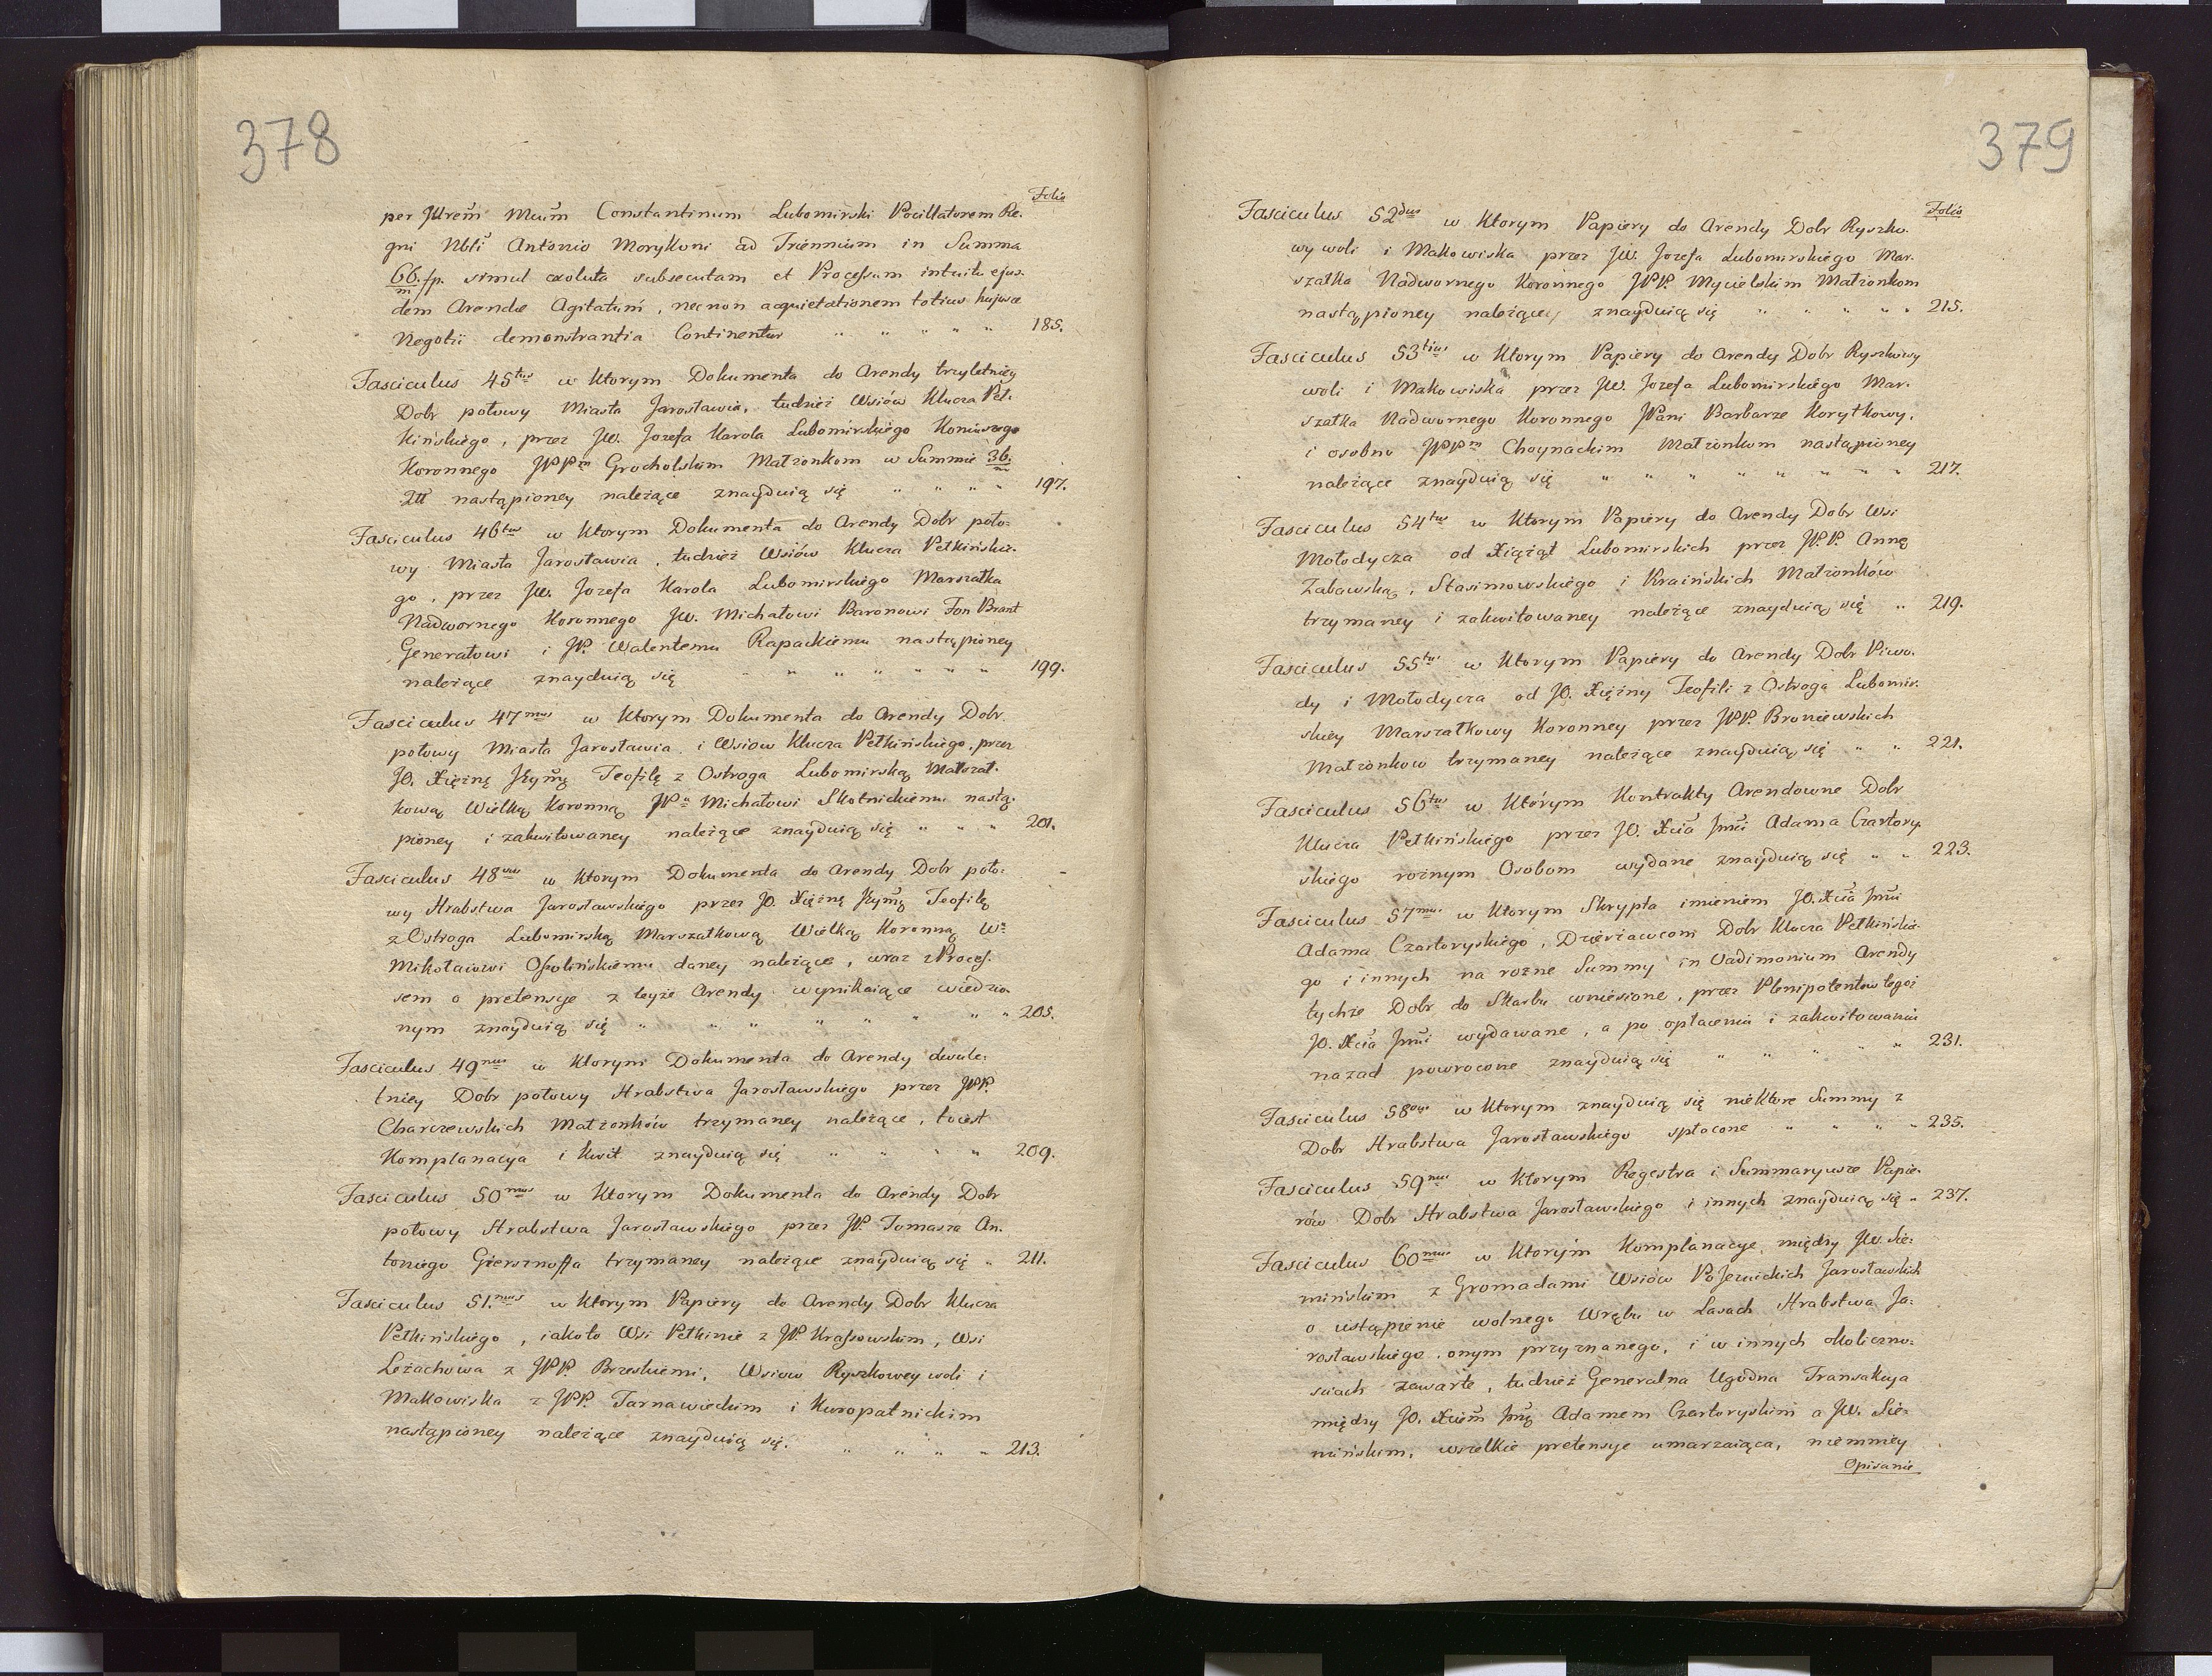 378
Folio
per Illrem Mcum Constantinum Lubomirski Pocillatorem Re-
gni Nbli Antonio Morykoni ad Triennium in Summa
66/m fp. simul exoluta subsecutam et Processum intuitu ejus-
dem Arendæ Agitatum, necnon acquietationem totius hujusce
Negotii demonstrantia Continentur " " " " " 185.
Fasciculus 45tus w ktorym Dokumenta do Arendy trzyletniey
Dobr połowy Miasta Jarosławia, tudzież Wsiów Klucza Peł-
kińskiego, przez JW. Jozefa Karola Lubomirskiego Koniuszego
Koronnego JPPm Grocholskim Małżonkom w Summie 36/m
Zł nastąpioney należące znayduią się " " " " 197.
Fasciculus 46tus w ktorym Dokumenta do Arendy Dobr poło-
wy Miasta Jarosławia, tudzież Wsiów Klucza Pełkińskie-
go, przez JW. Jozefa Karola Lubomirskiego Marszałka
Nadwornego Koronnego JW. Michałowi Baronowi Fon Brant
Generałowi i JP. Walentemu Rapackiemu nastąpioney
należące znayduią się " " " " " " 199.
Fasciculus 47mus w ktorym Dokumenta do Arendy Dobr
połowy Miasta Jarosławia i Wsiow Klucza Pełkińskiego, przez
JO. Xiężnę Jeymę Teofilę z Ostroga Lubomirską Marszał-
kową Wielką Koronną JPu Michałowi Skotnickiemu nastą-
pioney i zakwitowaney należące znayduią się " " " 201.
Fasciculus 48vus w ktorym Dokumenta do Arendy Dobr poło-
wy Hrabstwa Jarosławskiego przez JO. Xiężnę Jeymę Teofilę
z Ostroga Lubomirską Marszałkową Wielką Koronną W:
Mikołaiowi Ossolińskiemu daney należące, wraz z Proces-
sem o pretensye z teyże Arendy wynikaiące wiedzio-
nym znayduią się " " " " " " " " 205.
Fasciculus 49nus w ktorym Dokumenta do Arendy dwule-
tniey Dobr połowy Hrabstwa Jarosławskiego przez JPP.
Charczewskich Małżonków trzymaney należące, toiest
Komplanacya i Kwit znayduią się " " " " 209.
Fasciculus 50mus w ktorym Dokumenta do Arendy Dobr
połowy Hrabstwa Jarosławskiego przez JP. Tomasza An-
toniego Giersznoffa trzymaney należące znayduią się " 211.
Fasciculus 51.mus w ktorym Papiery do Arendy Dobr Klucza
Pełkińskiego, iakoto Wsi Pełkinie z JP. Krassowskim, Wsi
Leżachowa z JPP. Brzeskiemi, Wsiow Ryszkowey woli i
Makowiska z JPP. Tarnawieckim i Kuropatnickim
nastąpioney należące znayduią się. " " " " 213.
379
Folio
Fasciculus 52dus w ktorym Papiery do Arendy Dobr Ryszko-
wy woli i Makowiska przez JW. Jozefa Lubomirskiego Mar-
szałka Nadwornego Koronnego JPP. Mycielskim Małżonkom
nastąpioney należącey znayduią się " " " " " 215.
Fasciculus 53tius w ktorym Papiery do Arendy Dobr Ryszkowy
woli i Makowiska przez JW. Jozefa Lubomirskiego Mar-
szałka Nadwornego Koronnego JPani Barbarze Korytkowy,
i osobno JPPm Choynackim Małżonkom nastąpioney
należące znayduią się " " " " " " " " 217.
Fasciculus 54tus w ktorym Papiery do Arendy Dobr Wsi
Mołodycza od Xiążąt Lubomirskich przez JP.P. Annę
Zabawską, Stasimowskiego i Kraińskich Małżonków
trzymaney i zakwitowaney należące znayduią się " 219.
Fasciculus 55tus w ktorym Papiery do Arendy Dobr Piwo-
dy i Mołodycza od JO. Xiężny Teofili z Ostroga Lubomir-
skiey Marszałkowy Koronney przez JPP. Broniewskich
Małżonkow trzymaney należące znayduią się " " 221.
Fasciculus 56tus w ktorym Kontrakty Arendowne Dobr
Klucza Pełkińskiego przez JO. Xcia Jmci Adama Czartory-
skiego rożnym Osobom wydane znayduią się " " 223.
Fasciculus 57mus w ktorym Skrypta imieniem JO. Xcia Jmci
Adama Czartoryskiego, Dzierżawcom Dobr Klucza Pełkińskie-
go i innych na rożne Summy in Vadimonium Arendy
tychże Dobr do Skarbu wniesione, przez Plenipotentow tegoż
JO. Xcia Jmci wydawane, a po opłaceniu i zakwitowaniu
nazad powrocone znayduią się " " " " " 231.
Fasciculus 58vus w ktorym znayduią się niektore Summy z
Dobr Hrabstwa Jarosławskiego spłocone " " " " 235.
Fasciculus 59nus w ktorym Regestra i Summaryusze Papie-
rów Dobr Hrabstwa Jarosławskiego i innych znayduią się " 237.
Fasciculus 60mus w ktorym Komplanacye między JW. Sie-
mińskim z Gromadami Wsiów PoJezuickich Jarosławskich
o ustąpienie wolnego Wrębu w Lasach Hrabstwa Ja-
rosławskiego, onym przyznanego, i w innych okoliczno-
sciach zawarte, tudzież Generalna Ugodna Transakcya
między JO. Xciem Jmę Adamem Czartoryskim a JW. Sie-
mińskim, wszelkie pretensye umarzaiąca, niemniey
Opisanie